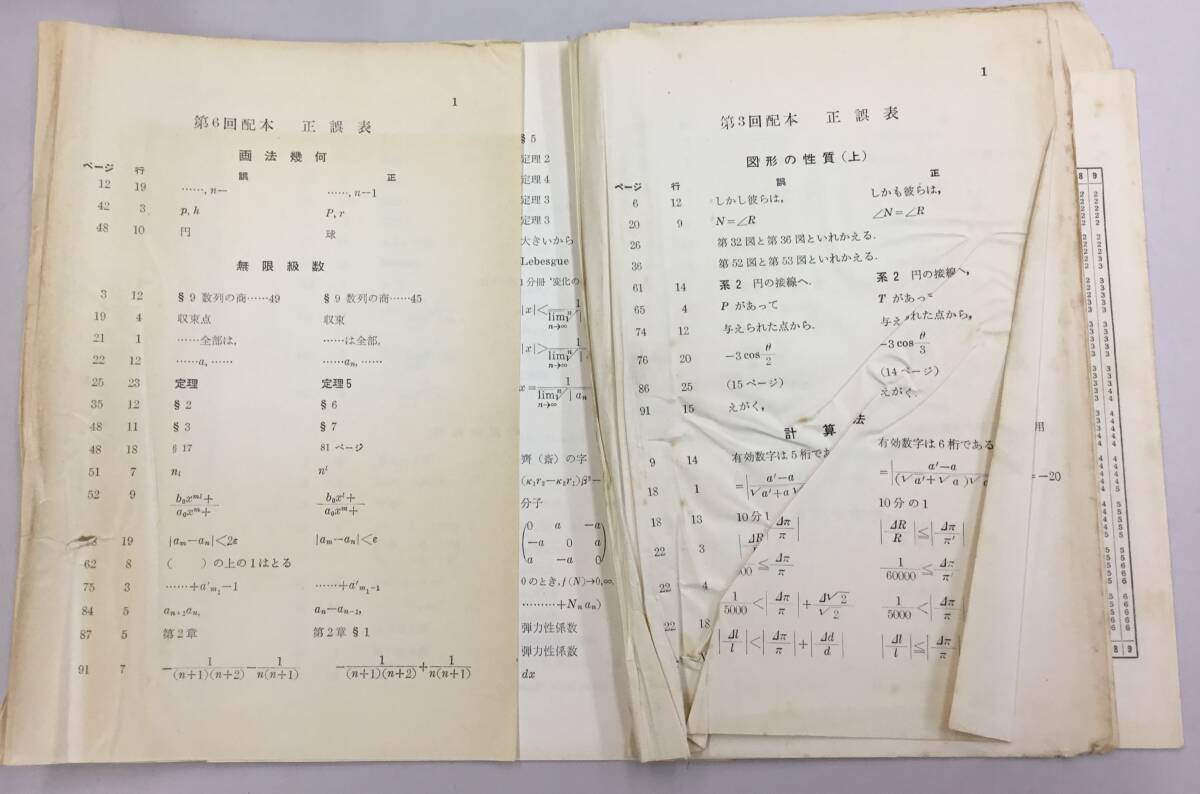 1
第6回配本 正誤表
画法幾何
ページ 行 誤 正
12 19 ……, n— ……, n—1
42 3 p, h P, r
48 10 円 球
無限級数
3 12 §9 数列の商……49 §9 数列の商……45
19 4 収束点 収束
21 1 ……全部は, ……は全部,
22 12 ……a, …… ……aₙ, ……
25 23 定理 定理5
35 12 §2 §6
48 11 §3 §7
48 18 §17 81ページ
51 7 nᵢ nⁱ
52 9 b₀xᵐˡ+ / a₀xᵐ+ b₀xˡ+ / a₀xᵐ+
19 |aₘ—aₙ|<2ε |aₘ—aₙ|<ε
62 8 ( )の上の1はとる
75 3 ……+a′ₘ₁—1 ……+a′ₘ₁₋₁
84 5 aₙ₊₁aₙ, aₙ—aₙ₋₁,
87 5 第2章 第2章 §1
91 7 —1/(n+1)(n+2)—1/n(n+1) —1/(n+1)(n+2)+1/n(n+1)
§5
定理2
定理4
定理3
定理3
大きいから
Lebesgue
分冊“変化の
|x|<1/
lim n→∞
|x|>1/
lim n→∞
x=1/
lim n→∞ | aₙ
齊(斎)の字
(κ₁r₂—κ₂r₁)β²—
分子
0 a —a
—a 0 a
a —a 0
0のとき, f(N)→0, ∞.
………+Nₙaₙ)
弾力性係数
弾力性係数
dx
1
第3回配本 正誤表
図形の性質(上)
ページ 行 誤 正
6 12 しかし彼らは, しかも彼らは,
20 9 N=∠R ∠N=∠R
26 第32図と第36図といれかえる.
36 第52図と第53図といれかえる.
61 14 系2 円の接線へ. 系2 円の接線へ,
65 4 Pがあって Tがあっ
74 12 与えられた点から. 与えられた点から,
76 20 —3cos θ/2 —3cos θ/3
86 25 (15ページ) (14ページ)
91 15 えがく, えがく.
計算法
9 14 有効数字は5桁であ 有効数字は6桁である
18 1 =|a′—a/√a′+a√ =|a′—a/(√a′+√a)√a =—20
18 13 10分1 10分の1
22 3 ΔR ≦ Δπ/π |ΔR/R|≦|Δπ/π′|
22 4 1/5000<|Δπ/π|+Δ√2/√2 1/60000≦|Δπ/π
1/5000<|Δπ/π
22 18 |Δl/l|<|Δπ/π|+|Δd/d| |Δl/l|≦|Δπ/π
用
8 9
8 9